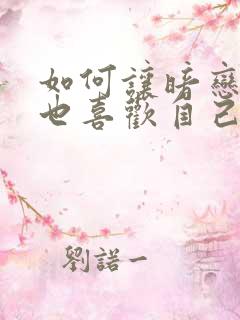 如何讓暗戀
也喜歡自己
劉諾一